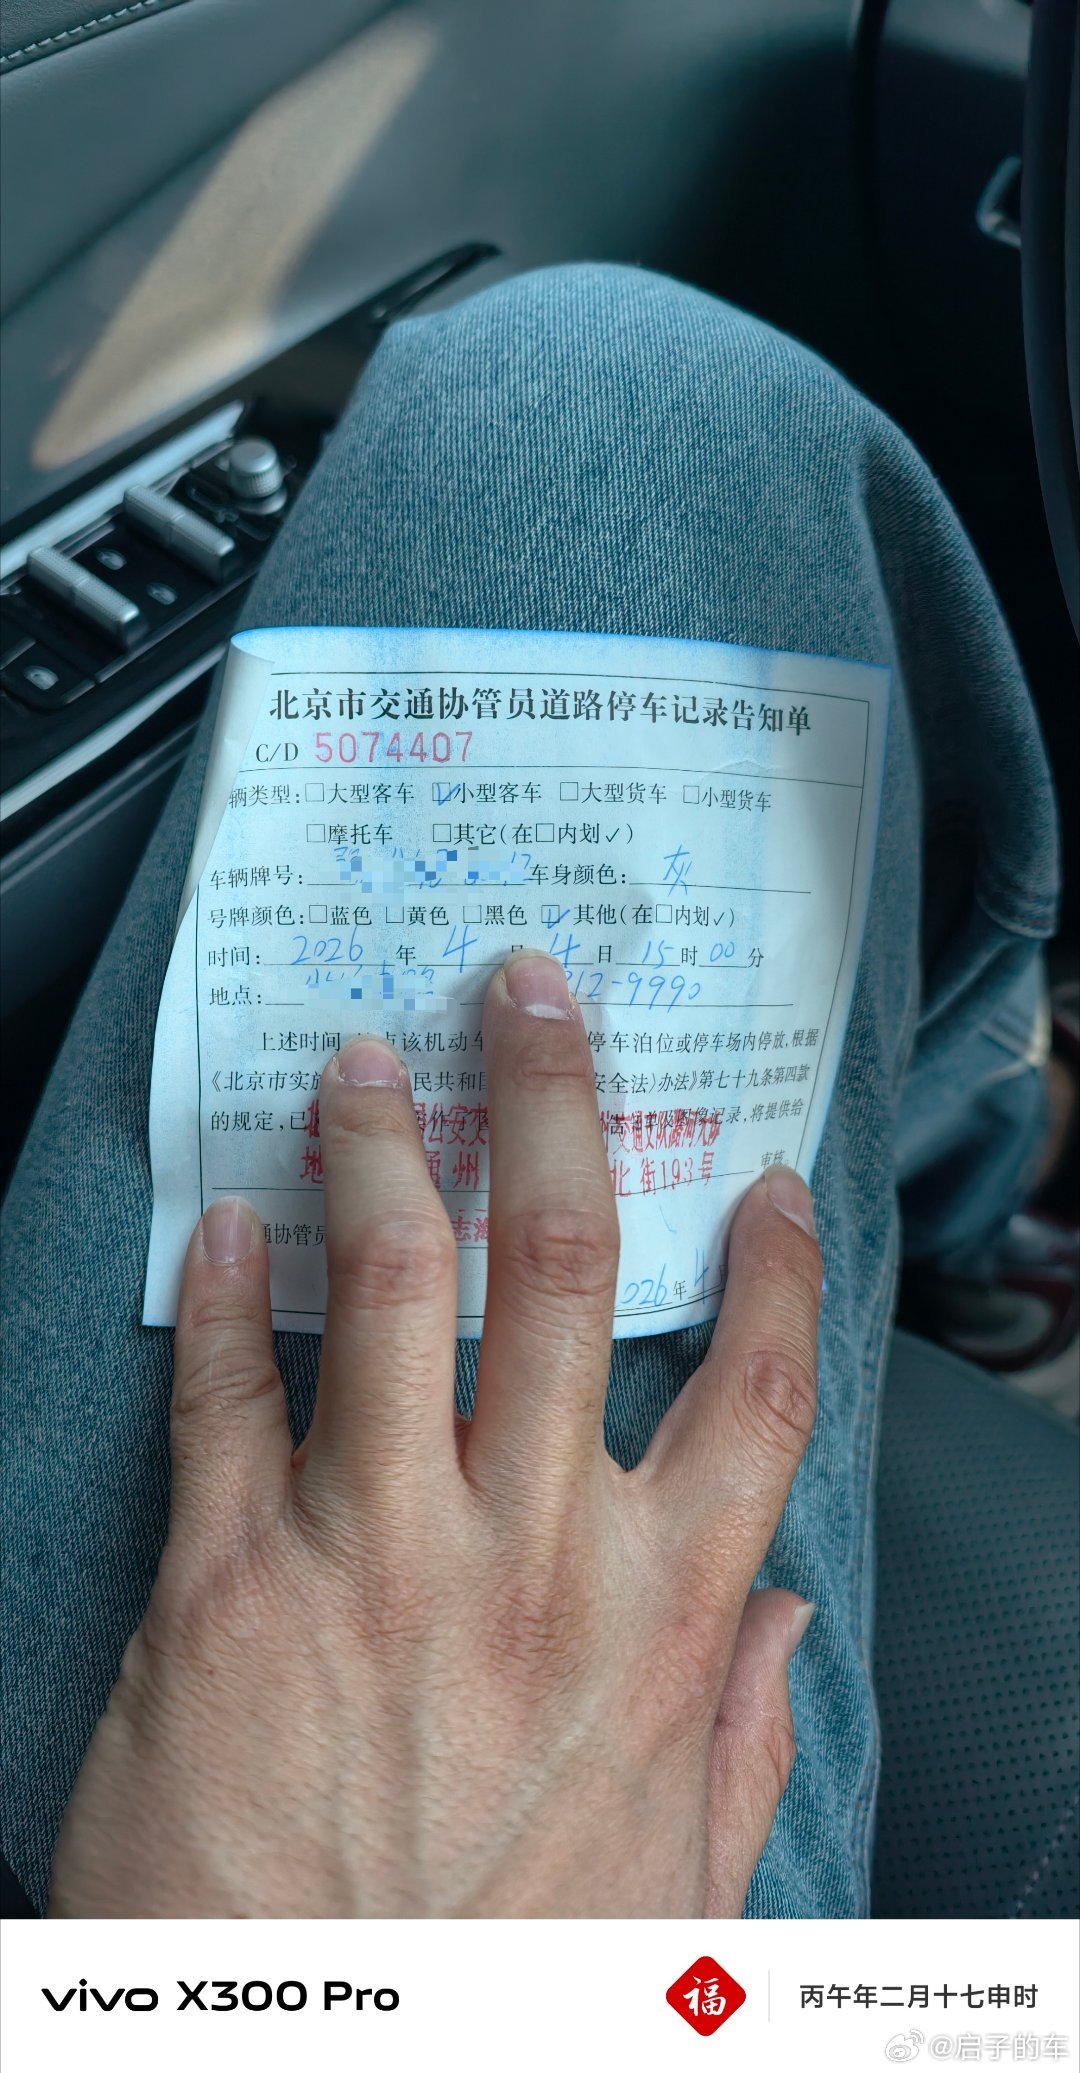 北京市交通协管员道路停车记录告知单
C/D 5074407
辆类型:□大型客车 ☑小型客车 □大型货车 □小型货车
□摩托车 □其它(在□内划✓)
车辆牌号: 车身颜色: 灰
号牌颜色:□蓝色 □黄色 □黑色 ☑其他(在□内划✓)
时间: 2026 年 4 月 4 日 15 时 00 分
地点: 12-9990
上述时间 点该机动车 停车泊位或停车场内停放,根据
《北京市实施 民共和国 安全法〉办法》第七十九条第四款
的规定,已 作了 告 单及图像记录,将提供给
公安交 交通支队潞河大队
地 通州 北街193号 审核。
通协管员
026 年 4 月
vivo X300 Pro
福
丙午年二月十七申时
@启子的车